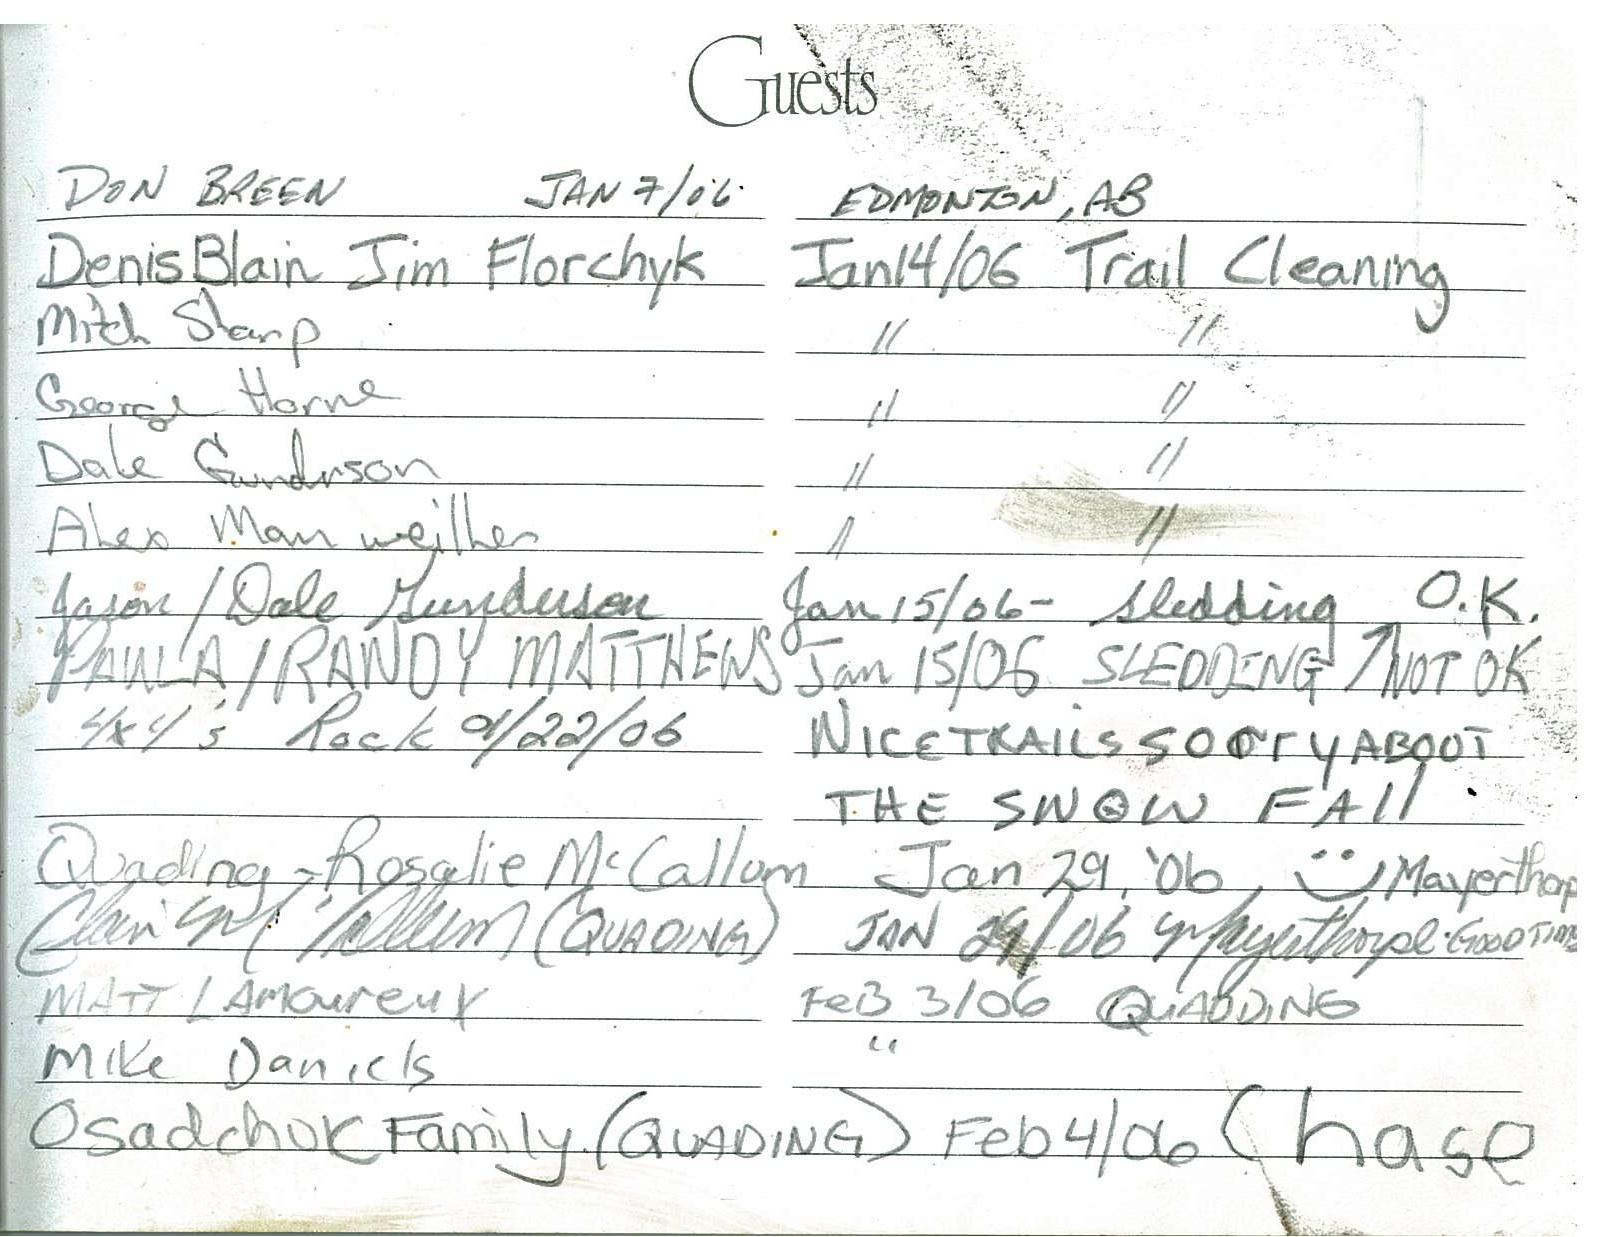 Guests
DON BREEN JAN 7/06 EDMONTON, AB
Denis Blain Jim Florchyk Jan 14/06 Trail Cleaning
Mitch Sharp " "
George Horne " "
Dale Gunderson " "
Alex " "
Jason / Dale Gunderson Jan 15/06 - Sledding O.K.
PAULA / RANDY MATTHEWS Jan 15/06 SLEDDING ↑ NOT OK
4x4's Rock /22/06 NICE TRAILS SOORY ABOOT
THE SNOW FAll
Quading - Rosalie McCallum Jan 29, '06, Mayerthorp
McCallum (QUADING) JAN 29/06 Mayerthorpe. GOOD TIME
MATT LAMoureuX FeB 3/06 QUADDING
Mike Daniels "
Osadchuk Family (QUADING) Feb 4/06 Chase